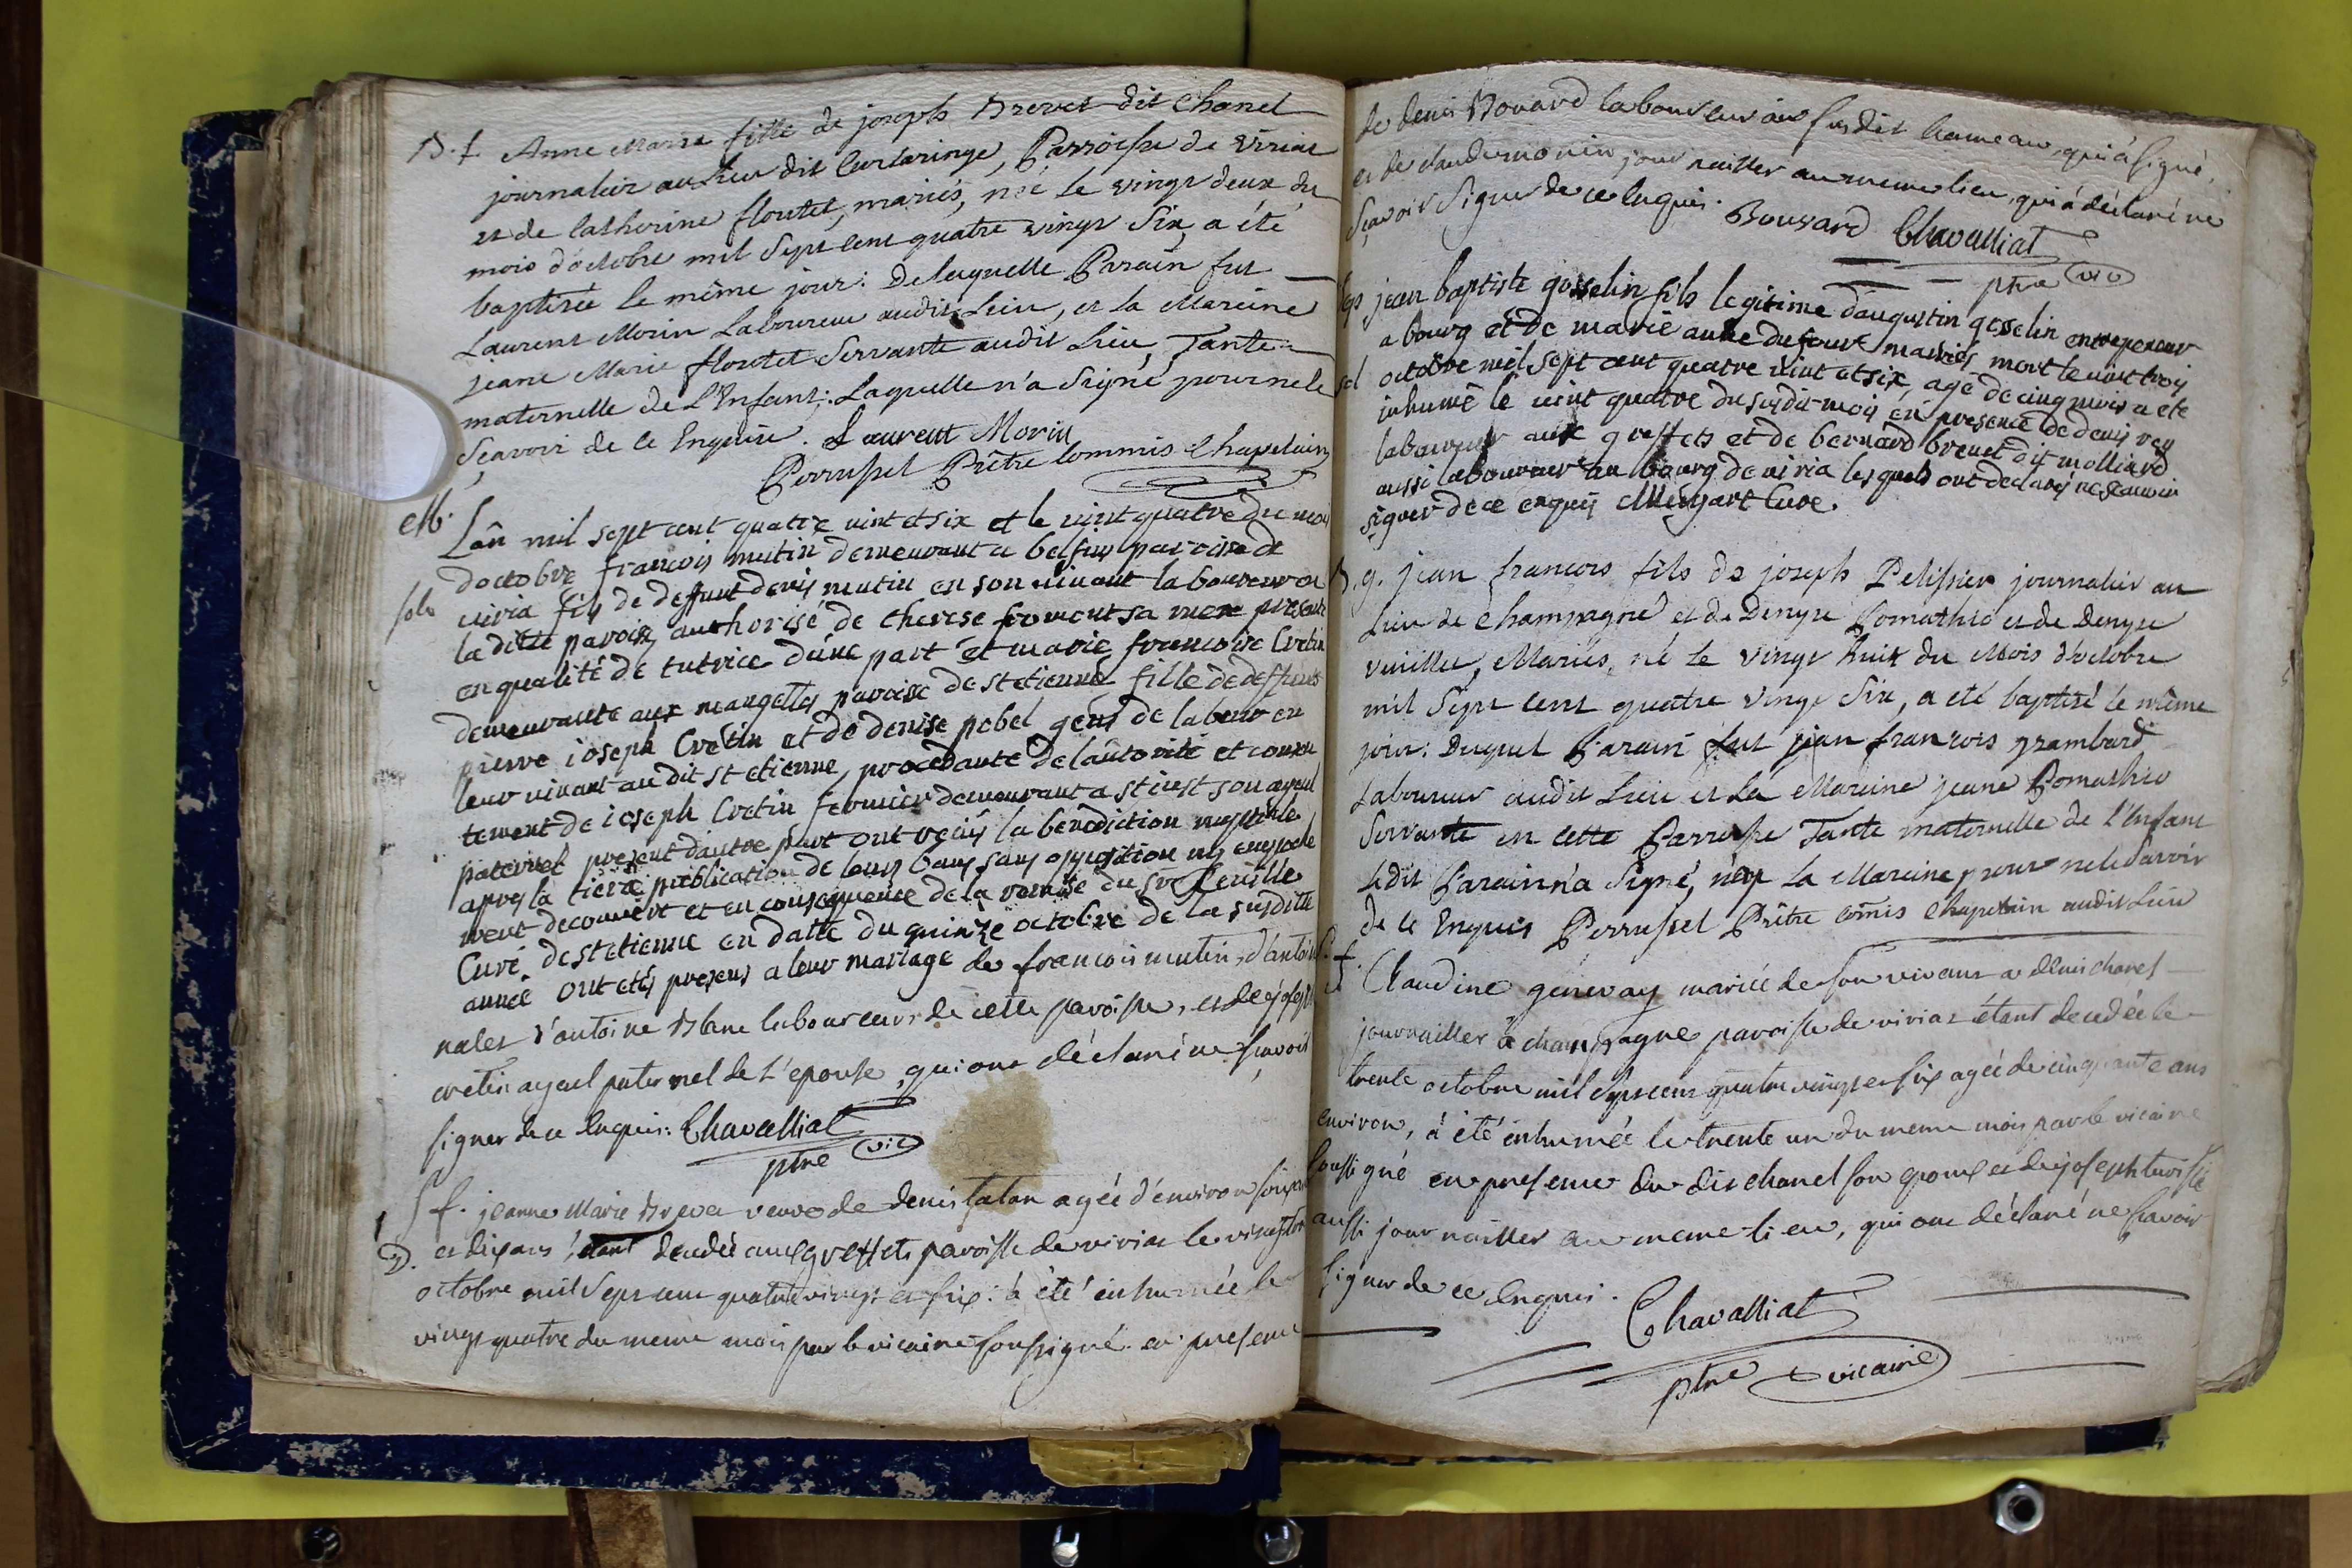 B. f. Anne Marie fille de joseph Brevet dit Chanel
journalier au Lieu dit Curtaringe, Parroisse de Viriat
et de Catherine floutet, mariés, née le vingt deux du
mois d'octobre mil Sept cent quatre vingt Six, a été
baptisée le même jour: de laquelle Parain fut
Laurent Morin Laboureur audit Lieu, et la Mareine
jeane Marie floutet Servante audit Lieu, Tante
maternelle de L'Enfant: Laquelle n'a Signé pour ne le
Scavoir de ce Enquise. Laurent Morin
Perrussel Prêtre Commis Chapelain
M. Lân mil sept cent quatre vint et six et le vint quatre du mois
doctobre françois mutin demeurant a belfin paroisse de
solv viria fils de deffunt denis mutin en son vivant laboureur en
la ditte paroisse, authorisé de therese froment sa mere presente
en qualité de tutrice d'une part et marie francoise Cretin
demeurante aux mangettes paroisse de st etienne fille de deffunts
pierre ioseph Cretin et de denise pobel gens de labeur en
leur vivant au dit st etienne, procedante de lautorité et consen
tement de ioseph Cretin fermier demeurant a st iust son ayeul
paternel present dautre part ont reçus la benediction nuptiale
apres la tierce publication de leurs bans sans opposition ny empeche
ment decouvert et en consequence de la remise du sr feuille
Curé de st etienne en datte du quinze octobre de la susditte
année ont etés presens a leur mariage de francois mutin, d'antoine
nales d'antoine Blanc laboureurs de cette paroisse, et de joseph
cretin ayeul paternel de L'epouse, qui ont déclaré ne scavoir
signer de ce Enquis: Chavalliat
ptre vic
S f. jeanne Marie Brevet veuve de denis talon agée d'environ soixante
D. et dix ans, étant decedée aux greffets paroisse de viriat le vingt trois
octobre mil Sept cent quatre vingt et six: à été inhumée le
vingt quatre du meme mois par le vicaire soussigné en presence
de denis Bouvard laboureur au susdit hameau, qui à signé,
et de claude monin journailler au meme lieu, qui à déclaré ne
Scavoir Signer de ce Enquis. Bouvard Chavalliat
ptre vic
sep jean baptiste gosselin fils legitime daugustin gosselin entrepeneur
a bourg et de marie anne dufour mariés mort le vint trois
sol octobre mil sept cent quatre vint et six, agé de cinq mois a eté
inhumé le vint quatre du susdit mois en presence de denis rey
laboureur aux greffets et de bernard brevet dit molliard
aussi laboureur au bourg de viria lesquels ont declarés ne scavoir
signer de ce enquis Meyzart Curé.
B. g. jean francois fils de joseph Pelissier journalier au
Lieu de Champagne et de Denyse Pomathio et de Denyse
vuillet, Mariés, né le vingt huit du Mois d'octobre
mil Sept cent quatre vingt Six, a été baptisé le même
jour: duquel Parain fut jean francois grambard
Laboureur audit Lieu et la Mareine jeane Pomathio
Servante en cette Parroisse Tante maternelle de L'Enfant
Ledit Parain n'a Signé, ny La Mareine pour ne le Savoir
de ce Enquis Perrussel Prêtre comis Chapelain audit Lieu
S. f. Claudine genevay mariée de son vivant a denis chanel
journailler à champagne paroisse de viriat étant decedée le
trente octobre mil Sept cent quatre vingt et six agée de cinquante ans
environ, à été inhumée le trente un du meme mois par le vicaire
soussigné en presence du dit chanel son epoux et de joseph
aussi journailler au meme lieu, qui ont déclaré ne scavoir
signer de ce Enquis.
Chavalliat
ptre vicaire